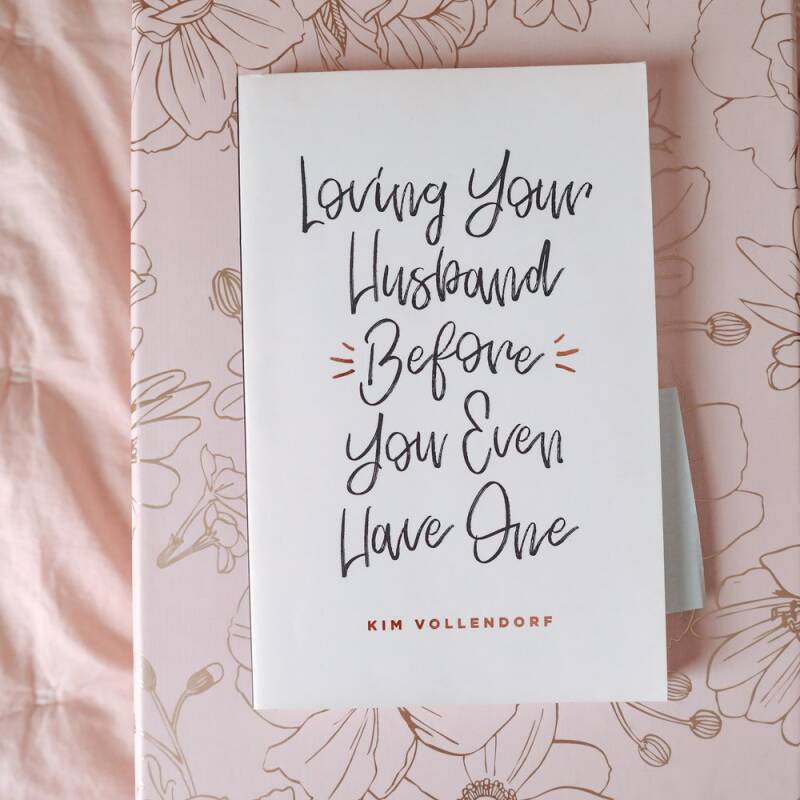 Loving Your
Husband
Before
You Even
Have One
KIM VOLLENDORF